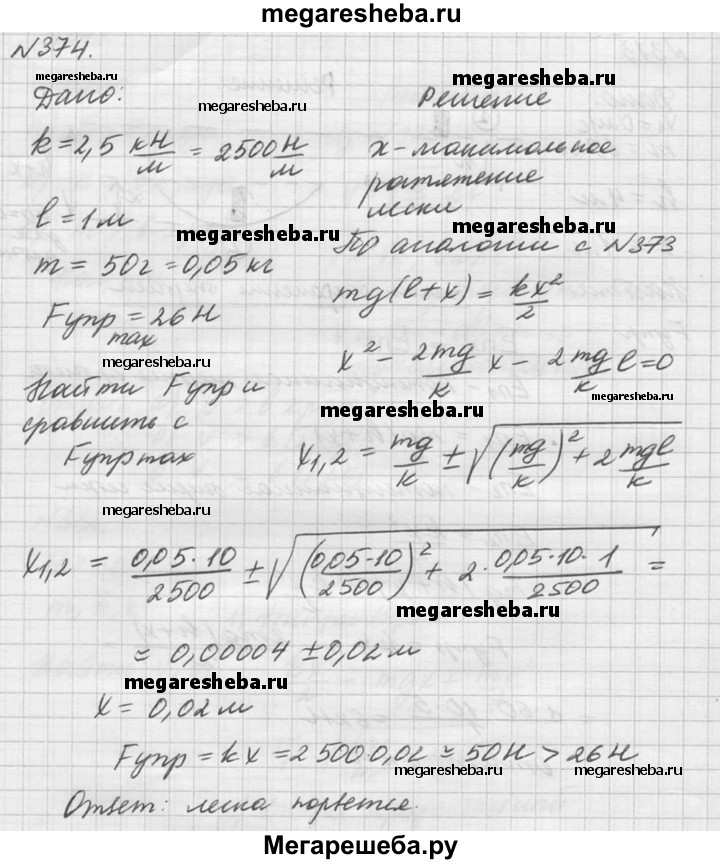 megaresheba.ru
№374.
megaresheba.ru
Дано:
megaresheba.ru
Решение
megaresheba.ru
k = 2,5 кН/м = 2500 Н/м
x - максимальное
растяжение
лески
l = 1 м
megaresheba.ru
По аналогии с №373
m = 50 г = 0,05 кг
mg(l+x) = kx²/2
Fупр max = 26 Н
megaresheba.ru
x² - 2mg/k x - 2mg/k l = 0
Найти Fупр и
сравнить с
Fупр max
megaresheba.ru
megaresheba.ru
x1,2 = mg/k ± √((mg/k)² + 2 mgl/k)
megaresheba.ru
x1,2 = 0,05·10/2500 ± √((0,05·10/2500)² + 2·0,05·10·1/2500) =
megaresheba.ru
≈ 0,00004 ± 0,02 м
megaresheba.ru
x = 0,02 м
Fупр = kx = 2500·0,02 ≈ 50 Н > 26 Н
megaresheba.ru
megaresheba.ru
Ответ: леска порвется.
Мегарешеба.ру